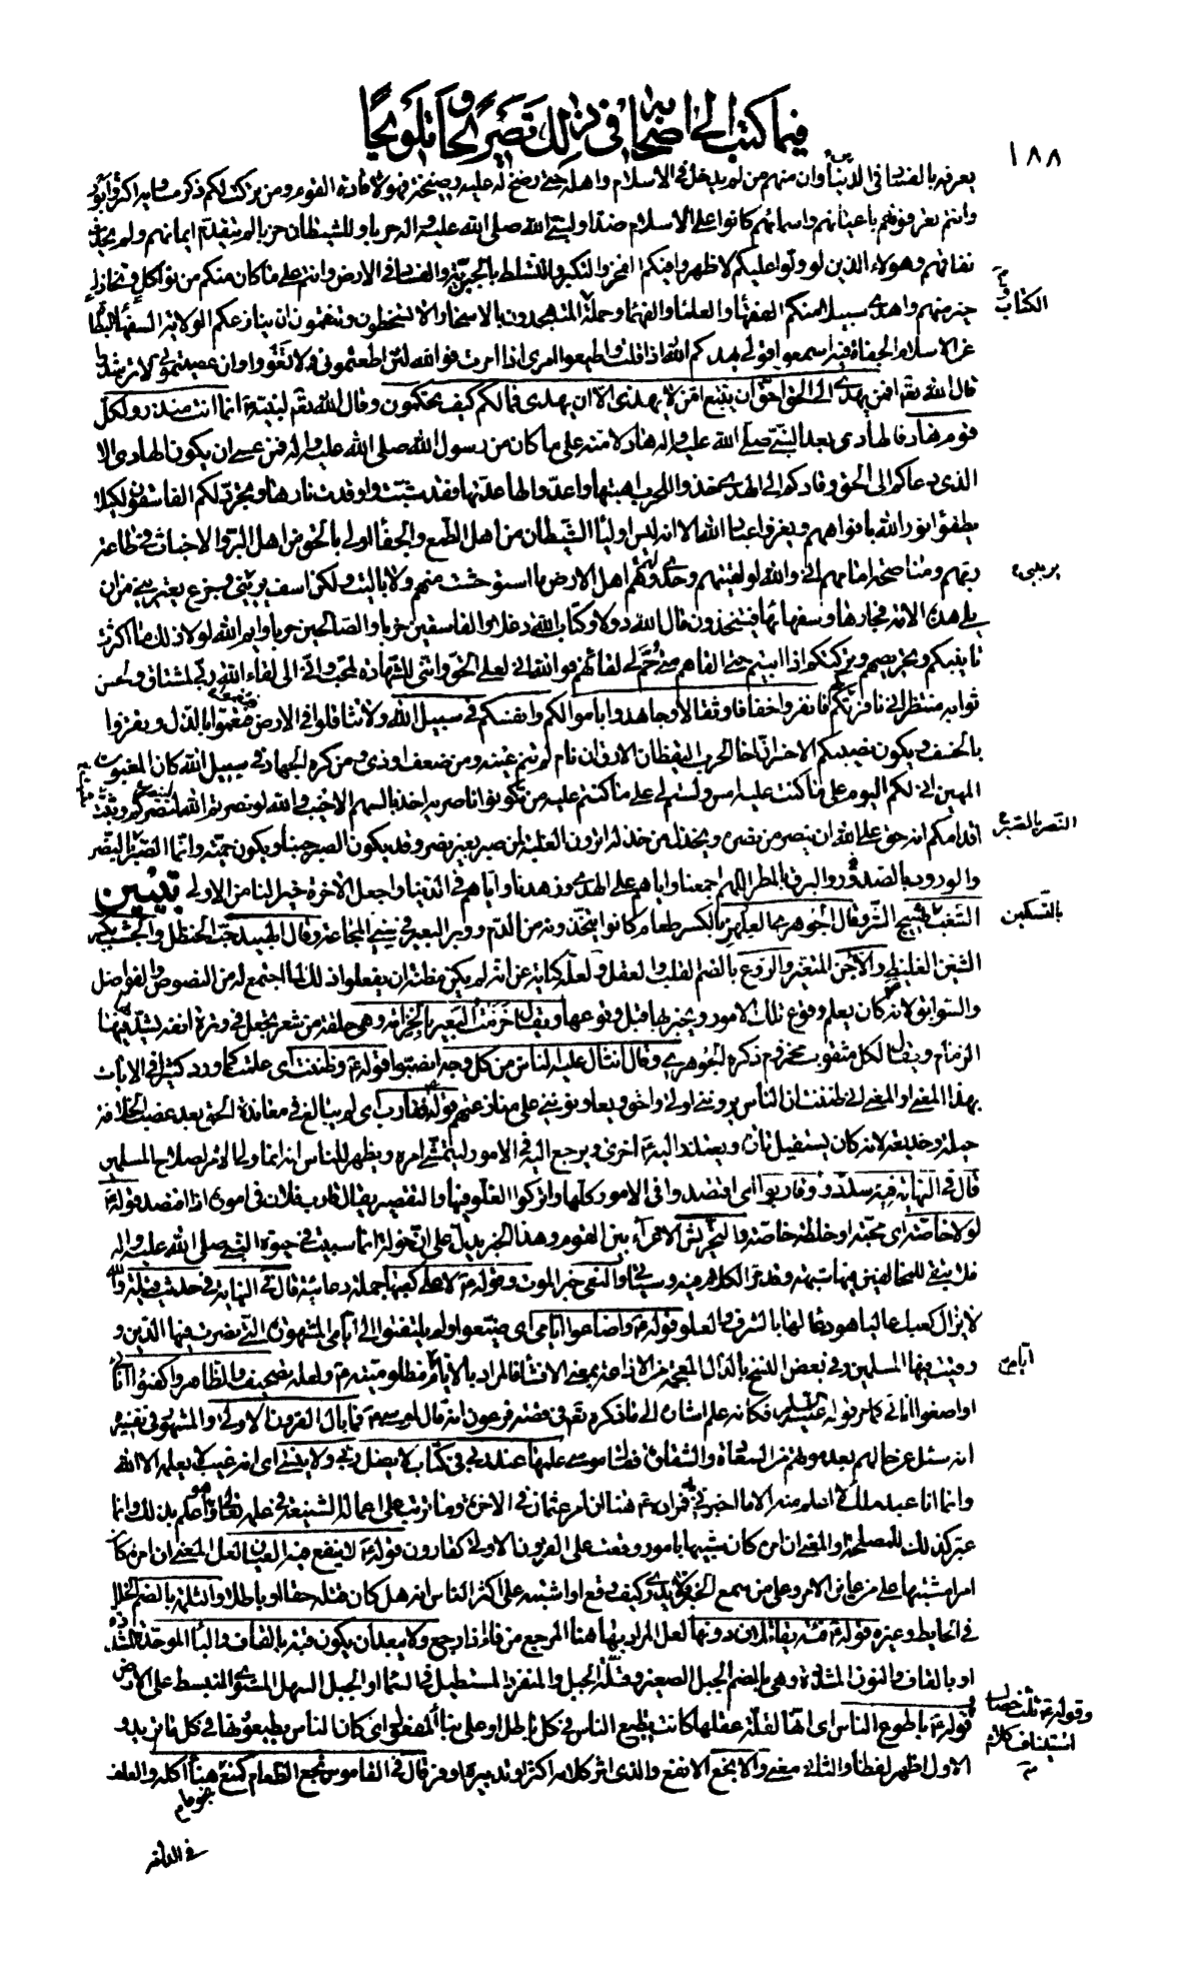 فيما كتب الى اصحابه في ذلك تصريحا وتلويحا
١٨٨
يعرف بالفساد في الدنيا وان منهم من لم يدخل في الاسلام واهله حتى رضخ له عليه رضيخة فهولاء قادة القوم ومن تركت لكم ذكر مساويه اكثر وابور
وانتم تعرفونهم باعيانهم واسمائهم كانوا على الاسلام ضدا ولنبي الله صلى الله عليه واله حربا وللشيطان حزبا لم يتقدم ايمانهم ولم يحدث
نفاقهم وهولاء الذين لو ولوا عليكم لاظهروا فيكم الفخر والتكبر والتسلط بالجبرية والفساد في الارض وانتم على ما كان منكم من تواكل وتخاذل
خير منهم واهدى سبيلا منكم الفقهاء والعلماء والفهماء وحملة المتهجدون بالاسحار الا تسخطون وتنقمون ان ينازعكم الولاية السفهاء البطاء
الكتاب و
عن الاسلام الجفاة فيه اسمعوا قولي يهدكم الله اذا قلت واطيعوا امري اذا امرت فوالله لئن اطعتموني لا تغووا وان عصيتموني لا ترشدوا
قال الله تعم افمن يهدي الى الحق احق ان يتبع امن لا يهدي الا ان يهدى فما لكم كيف تحكمون وقال الله تعم لنبيه انما انت منذر ولكل
قوم هاد فالهادي بعد النبي صلى الله عليه واله هاد لامته على ما كان من رسول الله صلى الله عليه واله فمن عسى ان يكون الهادي الا
الذي دعاكم الى الحق وقادكم الى الهدى خذوا للحرب اهبتها واعدوا لها عدتها فقد شبت واوقدت نارها وتجرد لكم الفاسقون لكيلا
يطفؤا نور الله بافواههم ويغروا عباد الله الا انه ليس اولياء الشيطان من اهل الطمع والجفا اولى بالحق من اهل البر والاخبات في طاعة
ربهم ومناصحة امامهم اني والله لو لقيتهم وحدي وهم اهل الارض ما استوحشت منهم ولا باليت ولكن اسف يريبني وجزع يعتريني من ان
يريبني
يلي هذه الامة فجارها وسفهائها فيتخذون مال الله دولا وكتاب الله دغلا والفاسقين حزبا والصالحين حربا وايم الله لولا ذلك ما اكثرت
تانيبكم وتحريصكم وتركتكم اذا ابيتم حتى القاهم متى حم لي لقائهم فوالله اني لعلى الحق واني للشهادة لمحب واني الى لقاء الله ربي لمشتاق ولحسن
ثوابه منتظر اني نافر بكم فانفروا خفافا وثقالا وجاهدوا باموالكم وانفسكم في سبيل الله ولا تثاقلوا في الارض فتعموا بالذل وتقروا
بالخسف ويكون نصيبكم الاخسر ان اخا الحرب اليقظان الارق ان نام لم تنم عينه ومن ضعف اوذي ومن كره الجهاد في سبيل الله كان المغبون
المهين اني لكم اليوم على ما كنت عليه امس ولستم لي على ما كنتم عليه من تكونوا ناصريه اخذ بالسهم الاخيب والله لو نصرتم الله لنصركم وثبت
اقدامكم انه حق على الله ان ينصر من نصره ويخذل من خذله اترون الغلبة لمن صبر بغير نصر وقد يكون الصبر جبنا ويكون حمية وانما الصبر بالنصر
النصر بالصبر
والورود بالصدور والبرق بالمطر اللهم اجمعنا واياهم على الهدى وزهدنا واياهم في الدنيا واجعل الاخرة خيرا لنا من الاولى تبيين
الشغب تهييج الشر وقال الجوهري العلهز بالكسر طعام كانوا يتخذونه من الدم ووبر البعير في سني المجاعة وقال الهبيد حب الحنظل والجشب
بالتسكين
الشيئ الغليظ والآجن المتغير والروع بالضم القلب والعقل ولعله كناية عن انه لم يكن مظنة ان يفعلوا ذلك لما اجتمع له من النصوص والفواضل
والسوابق لانه كان يعلم وقوع تلك الامور ويخبر بها قبل وقوعها ويقال خزمت البعير بالخزامة وهي حلقة من شعر تجعل في وترة انفه ليشد فيها
الزمام ويقال لكل مثقوب مخزوم ذكره الجوهري وقال انثال عليه الناس من كل وجه انصبوا قوله ع وظننت اي علمت كما ورد كثيرا في الايات
بهذا المعنى او المعنى اني ظننت ان الناس يروني اولى واحق ويعاونوني على منازعتهم قوله فقارب اي لم يبالغ في معاندة الحق بعد غصب الخلافة
حيلة وخديعة لانه كان يستقيل تارة ويعتذر اليه ع اخرى ويرجع اليه في الامور ليتمشى امره ويظهر للناس انه انما ولي الامر لصلاح المسلمين
قال في النهاية فيه سددوا وقاربوا اي اقتصدوا في الامور كلها واتركوا الغلو فيها والتقصير يقال قارب فلان في اموره اذا اقتصد قوله ع
لولا خاصة اي محبة او خلطة خاصة والتحريش الاغراء بين القوم وهذا الخبر يدل على ان خولة انما سبيت في حيوة النبي صلى الله عليه واله
فلا يبقى للمخالفين فيها شبهة وقد مر الكلام فيه وسياتي والنعي خبر الموت وقوله ع لا علي كعبها جملة دعائية قال في النهاية في حديث قيلة والله
لا يزال كعبك عاليا هو دعاء لها بالشرف والعلو قوله ع واضاعوا ايامي اي ضيعوا ولم يلتفتوا الى ايامي المشهورة التي نصرت فيها الدين و
وقيت فيها المسلمين وفي بعض النسخ بالذال المعجمة من الاذاعة بمعنى الافشاء فالمراد بالايام ايام مظلوميته ع ولعله تصحيف والظاهر واكفئوا انائي
ايامي
او اصغوا انائي كما مر قوله عليه السلام فكانه علم اشارة الى ما ذكره تعم في قصة فرعون انه قال لموسى ع فما بال القرون الاولى والمشهور في تفسيره
انه سئل عن حالهم بعد موتهم من السعادة والشقاوة فقال موسى علمها عند ربي في كتاب لا يضل ربي ولا ينسى اي انه غيب لا يعلمه الا الله
وانما انا عبد مثلك لا اعلم منه الا ما اخبرني به فمراده ع هنا ان امر عثمان في الاخرة وما ترتب على اعماله الشنيعة في علمه تعالى وهو اعلم بذلك وانما
عبر كذلك للمصلحة او المعنى ان امره كان شبيها بامور وقعت على القرون الاولى كقارون قوله ع لا ينفع فيه العيان لعل المعنى ان امره كان
امرا مشتبها على من عاين الامر وعلى من سمع الخبر فلا يدري كيف وقع او اشتبه على اكثر الناس انه هل كان قتله حقا او باطلا والثلمة بالضم الخلل
في الحايط وغيره قوله ع فئة يقاتلان دونها لعل المراد بها هنا المرجع من فاء اذا رجع ولا يبعد ان يكون قبة بالقاف والباء الموحدة المشددة
او بالقاف والنون المشددة وهي بالضم الجبل الصغير وقلة الجبل والمنفرد المستطيل في السماء او الجبل السهل المستوي المنبسط على الارض
وقوله ع ثلث خصال استيناف كلام م
قوله ع باطوع الناس اي انها لقلة عقلها كانت تطيع الناس في كل باطل او على بناء المفعول اي كان الناس يطيعونها في كل ما تريد و
الاول اظهر لفظا والثاني معنى والانجع الانفع والذي اثر كلامه اكثر او تدبيره اوفر قال في القاموس نجع الطعام كمنع هنأ آكله والعلف
في الدابة